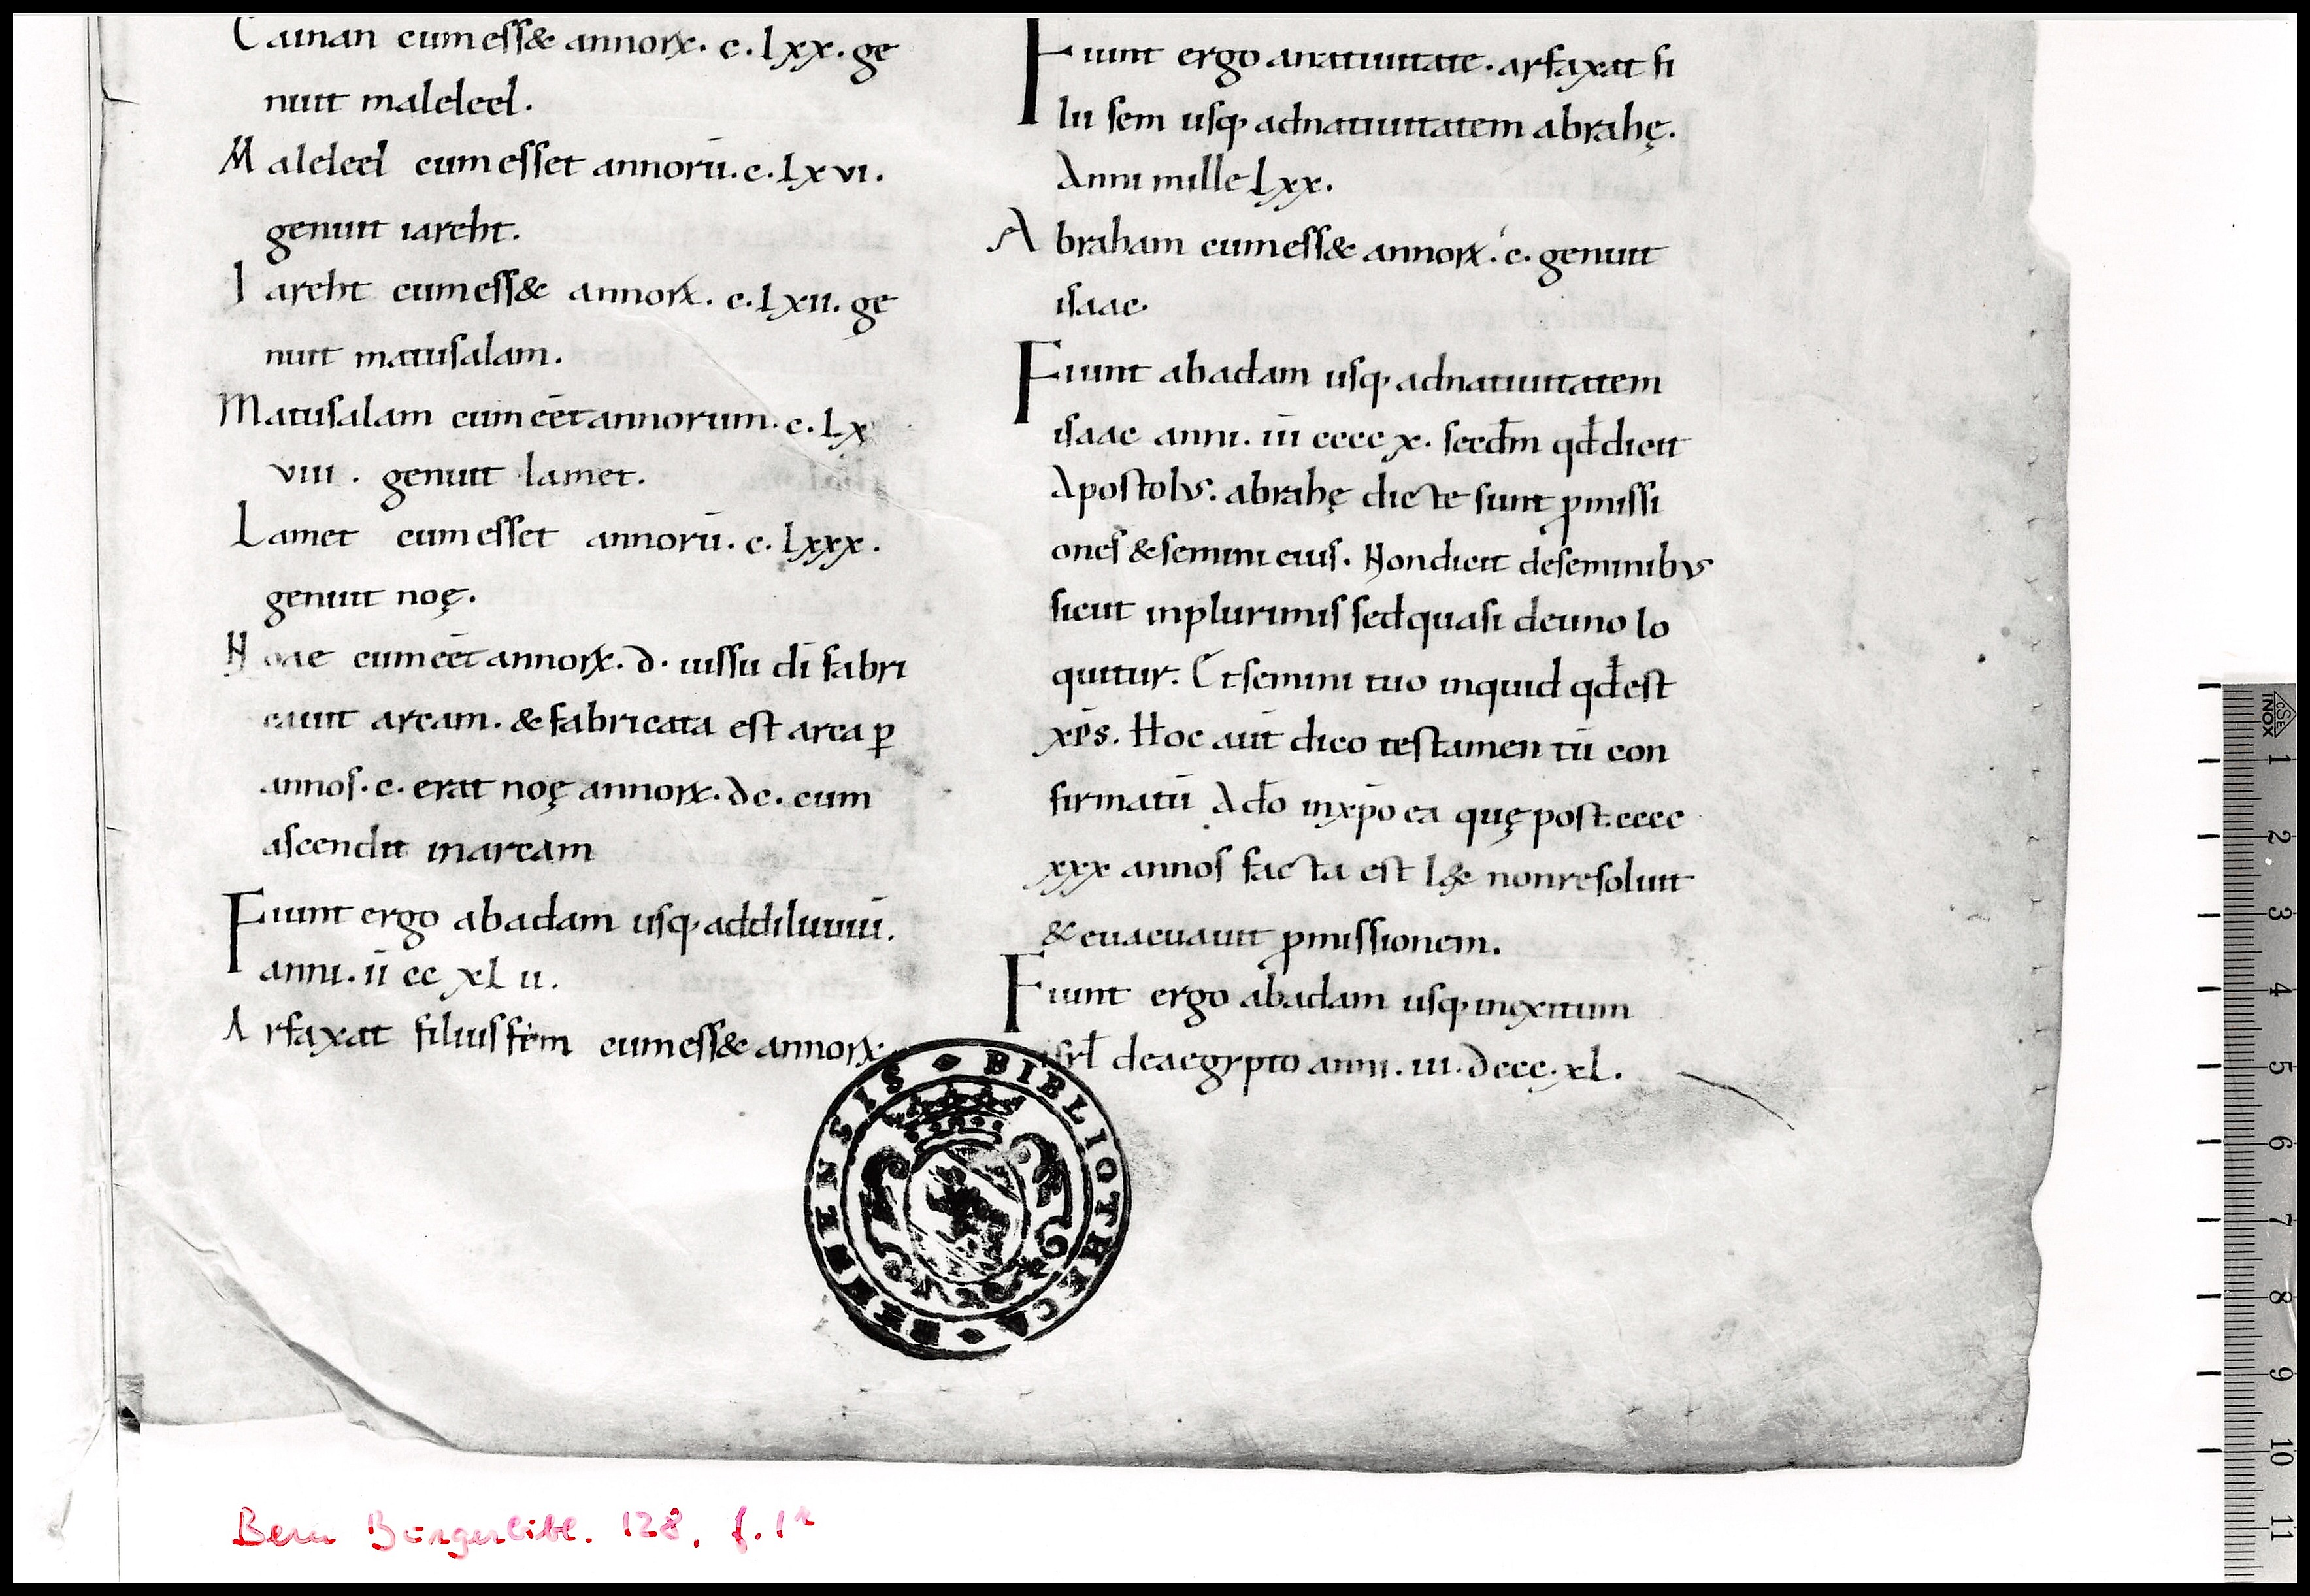 Cainan cum ess& annorꝝ. c. lxx. ge
nuit maleleel.
Maleleel cum esset annorū. c. lxvi.
genuit iareht.
Iareht cum ess& annorꝝ. c. lxii. ge
nuit matusalam.
Matusalam cum eēt annorum. c. lx
viii. genuit lamet.
Lamet cum esset annorū. c. lxxx.
genuit noę.
Noae cum eēt annorꝝ. d. iussu dī fabri
cauit arcam. & fabricata est arca ꝑ
annos. c. erat noę annorꝝ. dc. cum
ascendit in arcam
Fiunt ergo ab adam usq; ad diluuiū.
anni. īī cc xl ii.
Arfaxat filius sem cum ess& annorꝝ.
Fiunt ergo a natiuitate. arfaxat fi
lii sem usq; ad natiuitatem abrahę.
Anni mille lxx.
Abraham cum ess& annorꝝ. c. genuit
isaac.
Fiunt ab adam usq; ad natiuitatem
isaac anni. īīī cccc x. secdm̄ qđ dicit
Apostolus. abrahę dicte sunt ꝓmissi
ones & semini eius. Non dicit de seminibus
sicut in plurimis sed quasi de uno lo
quitur. Et semini tuo inquid qđ est
xp̄s. Hoc aūt dico testamentū con
firmatū Adō in xp̄o ea quę post. cccc
xxx annos facta est lex non resoluit
& euacuauit ꝓmissionem.
Fiunt ergo ab adam usq; in exitum
isrł de aegypto anni. iii. dccc. xl.
BIBLIOTHECA BERNENSIS
INOX
1
2
3
4
5
6
7
8
9
10
11
Bern Burgerbibl. 128, f. 1r